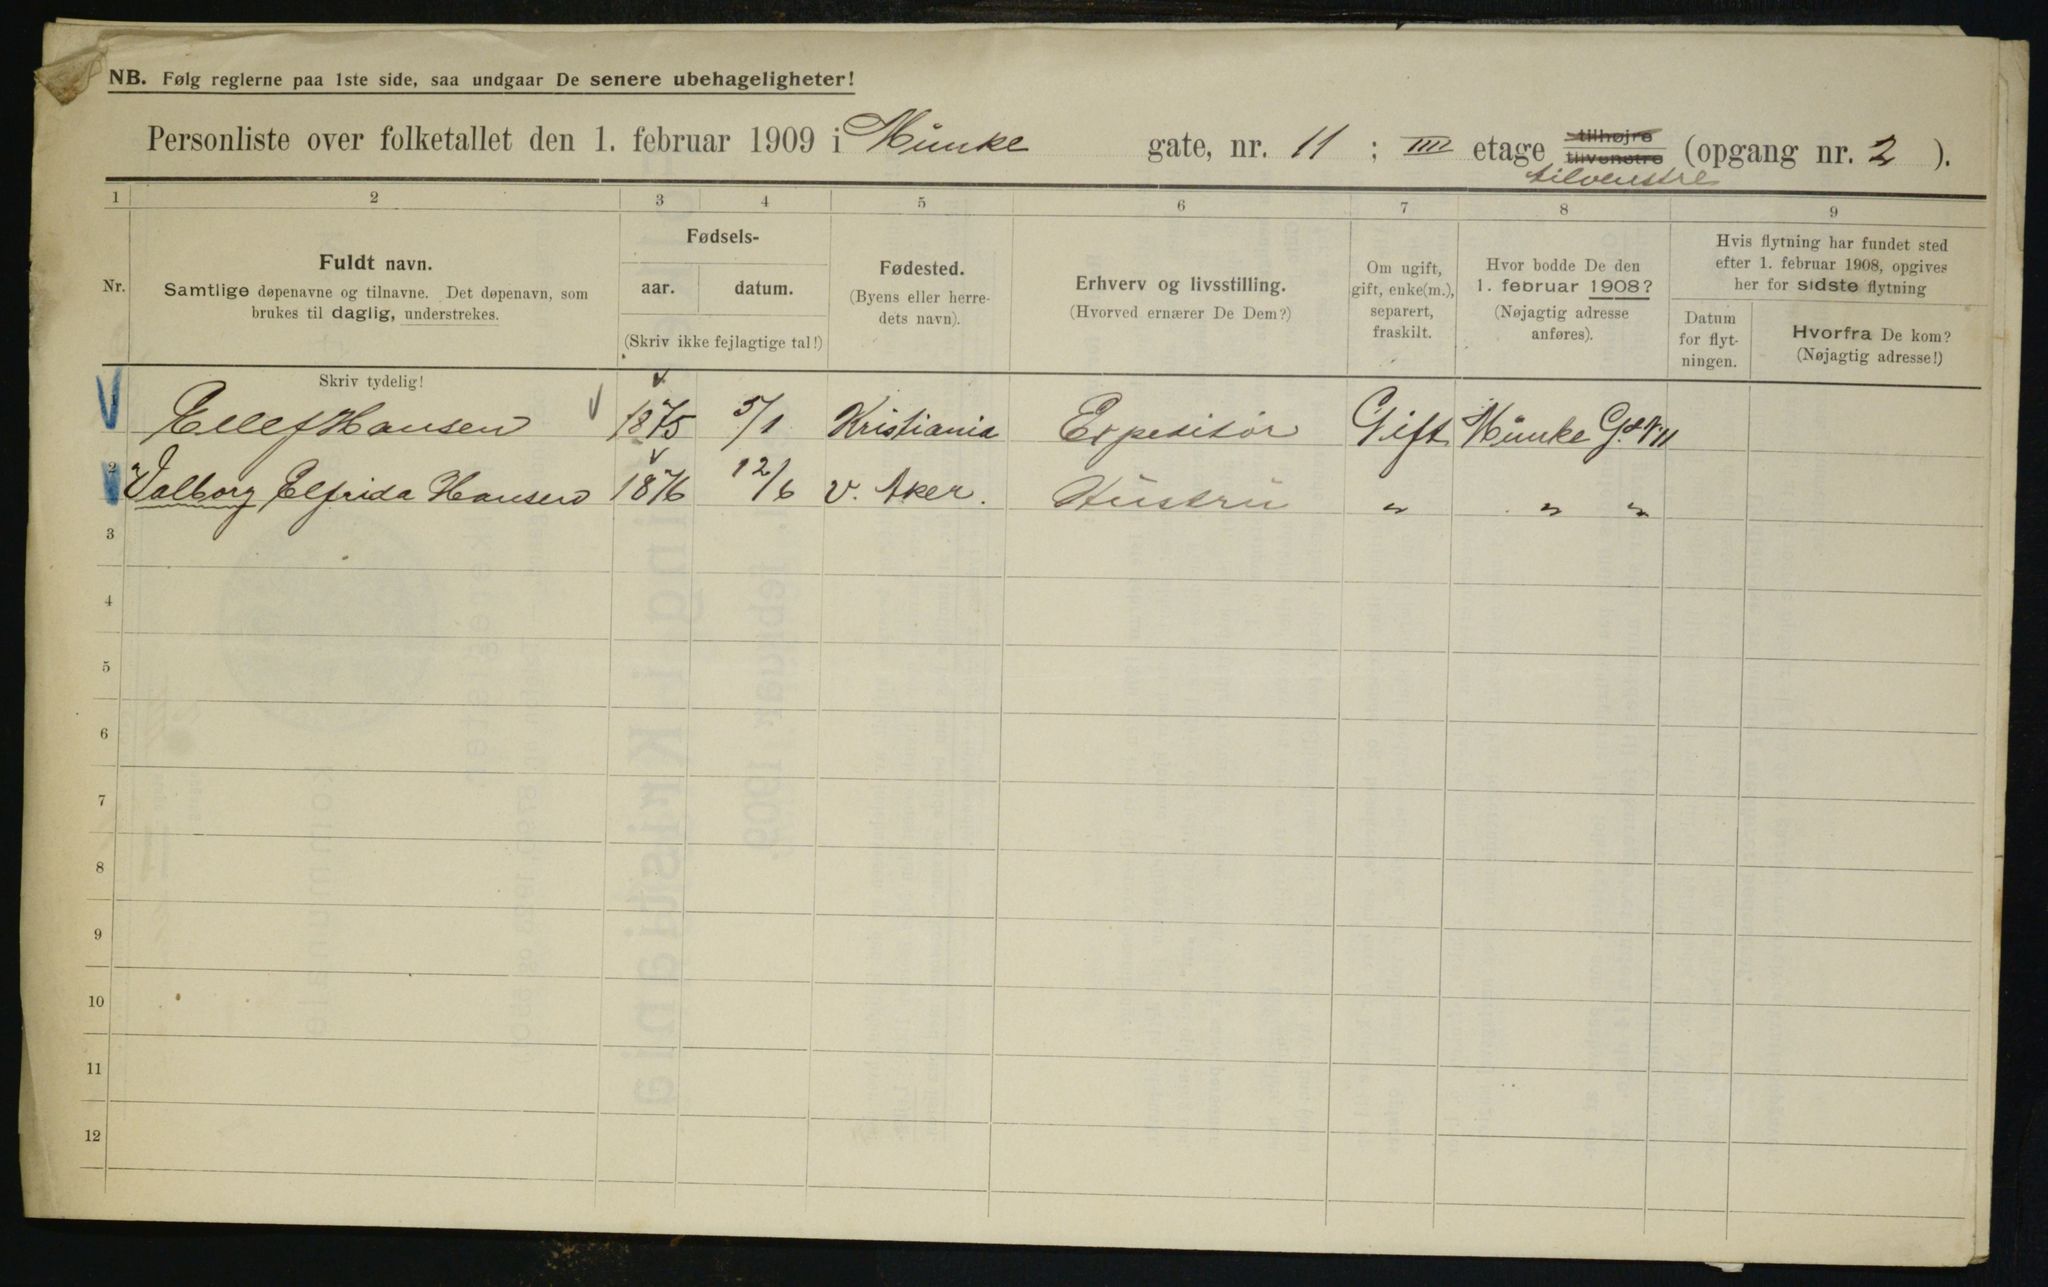 NB. Følg reglerne paa 1ste side, saa undgaar De senere ubehageligheter!
Personliste over folketallet den 1. februar 1909 i Münke gate, nr. 11 ; IIII etage tilhøjre tilvenstre (opgang nr. 2 ).
tilvenstre
1 2 3 4 5 6 7 8 9
Nr.
Fuldt navn.
Samtlige døpenavne og tilnavne. Det døpenavn, som
brukes til daglig, understrekes.
Skriv tydelig!
Fødsels-
aar. datum.
(Skriv ikke fejlagtige tal!)
Fødested.
(Byens eller herre-
dets navn).
Erhverv og livsstilling.
(Hvorved ernærer De Dem?)
Om ugift,
gift, enke(m.),
separert,
fraskilt.
Hvor bodde De den
1. februar 1908?
(Nøjagtig adresse
anføres).
Hvis flytning har fundet sted
efter 1. februar 1908, opgives
her for sidste flytning
Datum
for flyt-
ningen.
Hvorfra De kom?
(Nøjagtig adresse!)
1 Ellef Hansen 1875 5/1 Kristiania Expeditør Gift Münke Gd No 11
2 Valborg Elfrida Hansen 1876 12/6 V. Aker. Hustru " " "
3
4
5
6
7
8
9
10
11
12